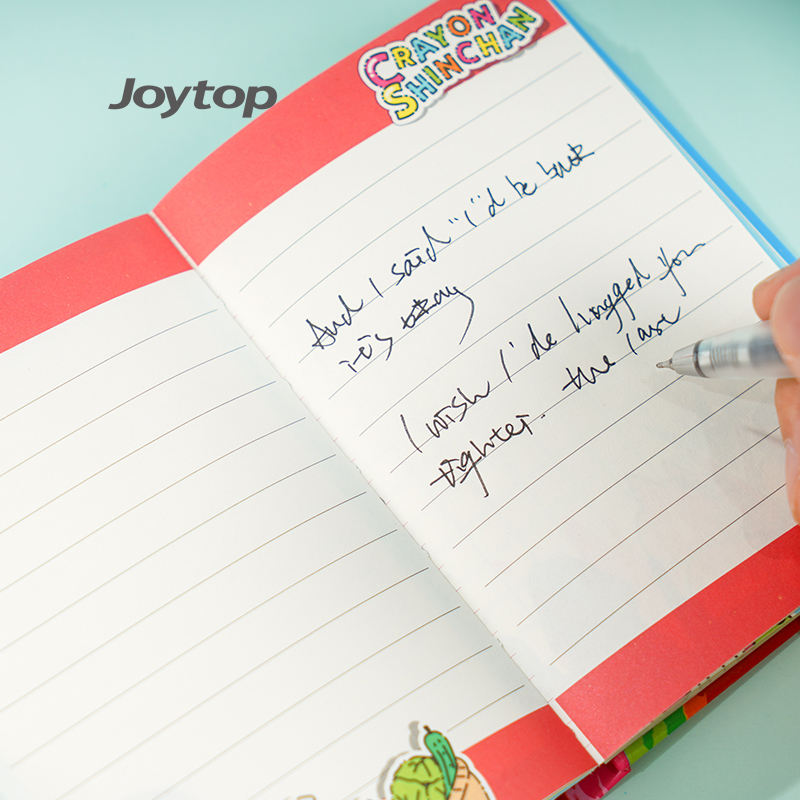 Joytop
CRAYON
SHINCHAN
And I said "I"d be back
it's okay
I wish I'de hugged you
tighter. the last